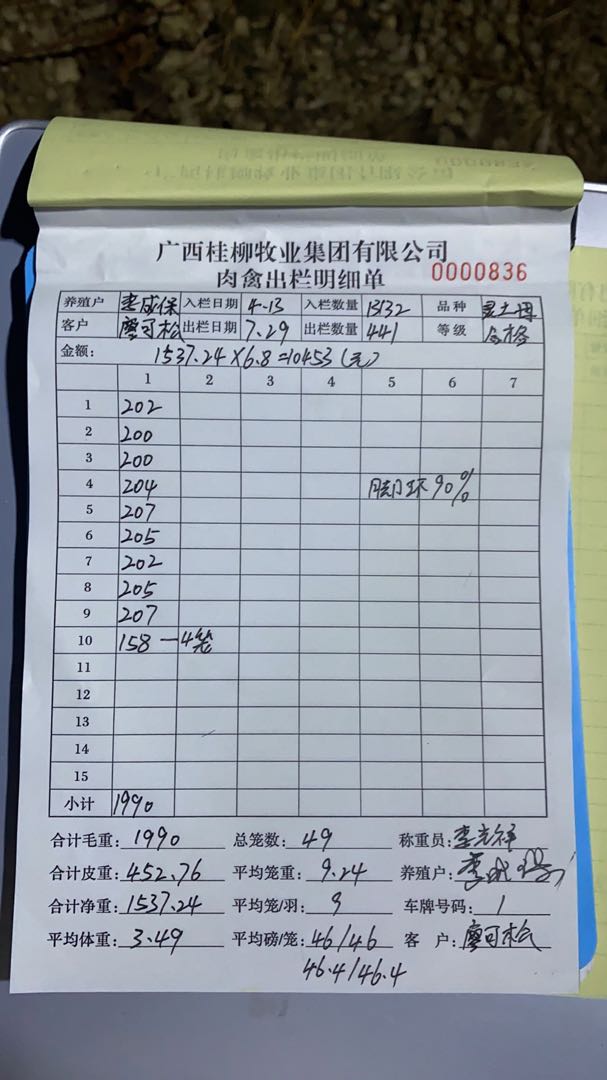 广西桂柳牧业集团有限公司
肉禽出栏明细单 0000836
养殖户 李成保 入栏日期 4-13 入栏数量 15132 品种 灵土母
客户 廖可松 出栏日期 7.29 出栏数量 441 等级 合格
金额: 1537.24×6.8=10453(元)
1 2 3 4 5 6 7
1 202
2 200
3 200
4 204 脚环90%
5 207
6 205
7 202
8 205
9 207
10 158—4笼
11
12
13
14
15
小计 1990
合计毛重: 1990 总笼数: 49 称重员:
合计皮重: 452.76 平均笼重: 9.24 养殖户:
合计净重: 1537.24 平均笼/羽: 9 车牌号码: 1
平均体重: 3.49 平均磅/笼: 46/46 客 户: 廖可松
46.4/46.4